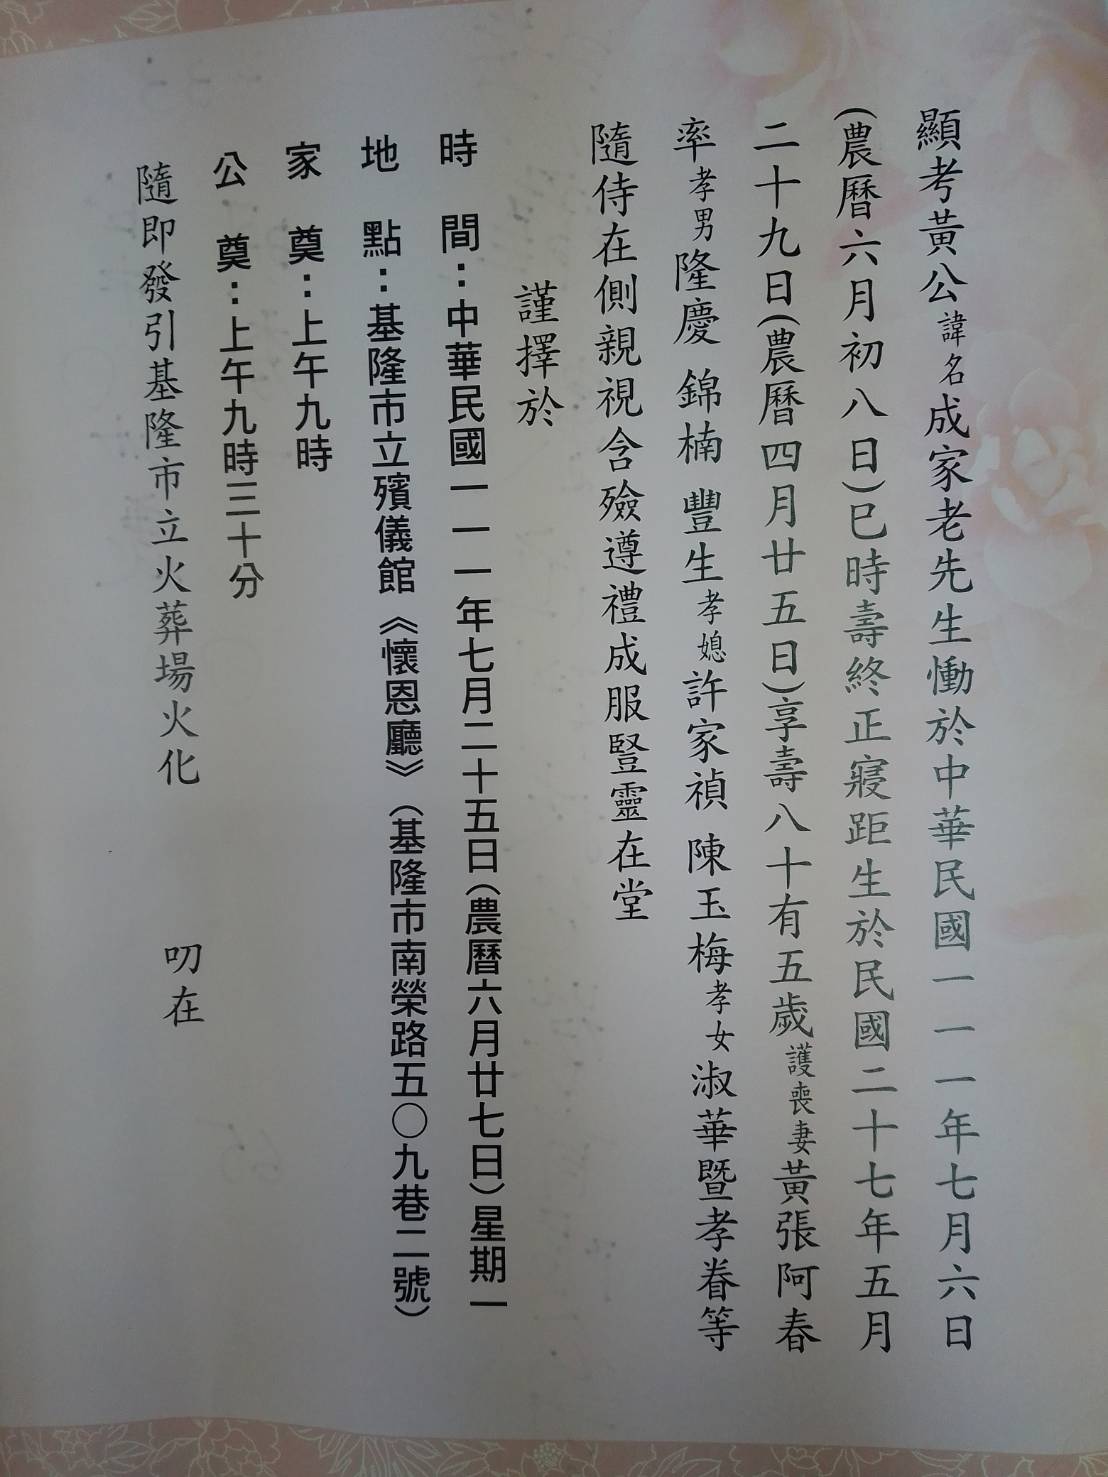 顯考黃公諱名成家老先生慟於中華民國一一一年七月六日
(農曆六月初八日)巳時壽終正寢距生於民國二十七年五月
二十九日(農曆四月廿五日)享壽八十有五歲護喪妻黃張阿春
率孝男隆慶 錦楠 豐生孝媳許家禎 陳玉梅孝女淑華暨孝眷等
隨侍在側親視含殮遵禮成服豎靈在堂
謹擇於
時 間:中華民國一一一年七月二十五日(農曆六月廿七日)星期一
地 點:基隆市立殯儀館《懷恩廳》(基隆市南榮路五〇九巷二號)
家 奠:上午九時
公 奠:上午九時三十分
隨即發引基隆市立火葬場火化 叨在